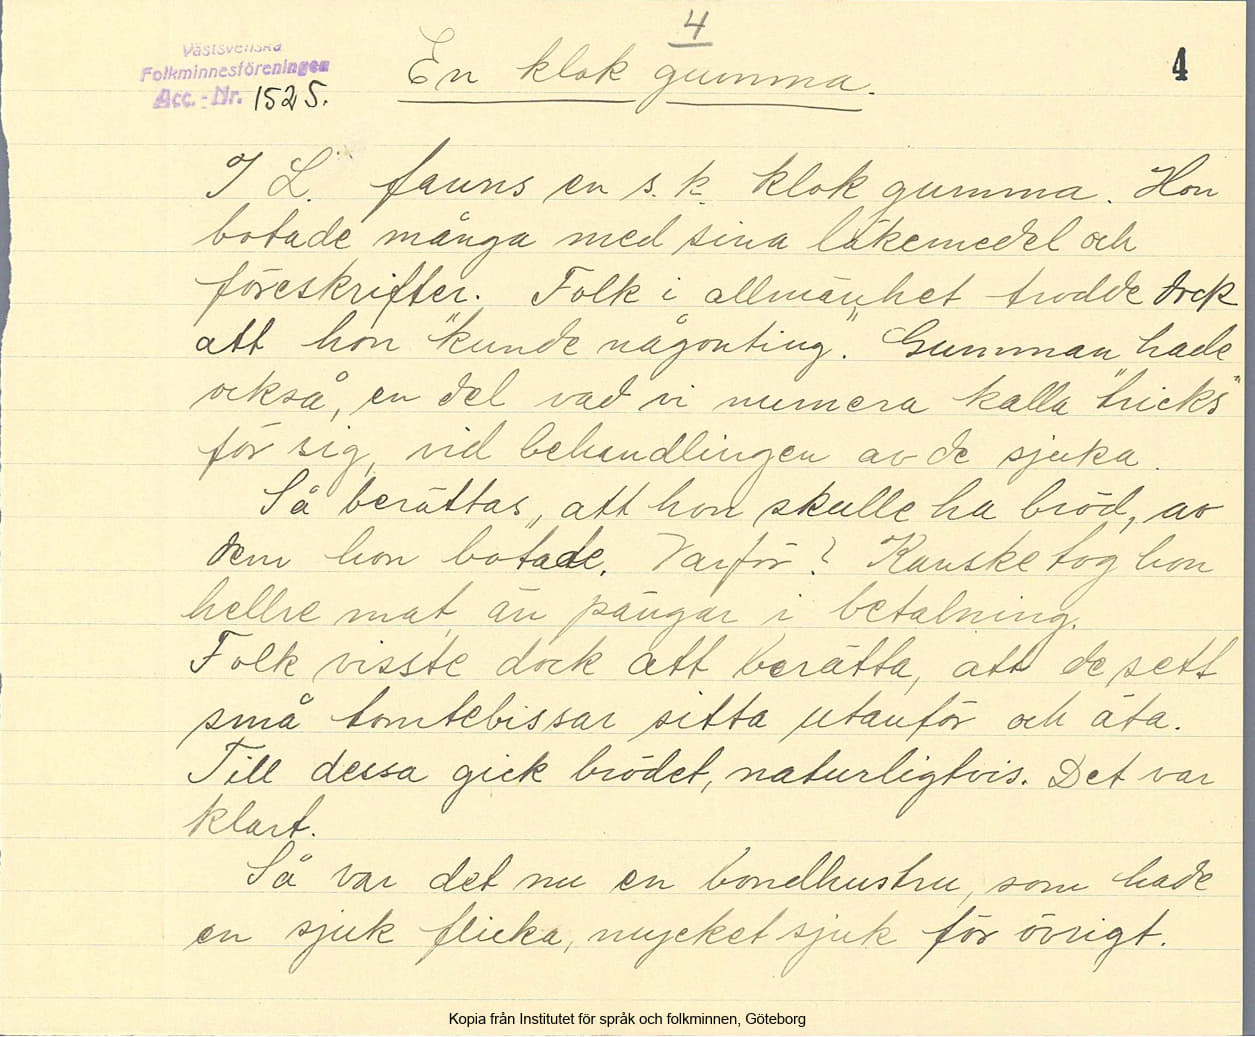 4
Västsvenska
Folkminnesföreningen
Acc. - Nr. 1525.
En klok gumma.
4
I L. fanns en s. k. klok gumma. Hon
botade många med sina läkemedel och
föreskrifter. Folk i allmänhet trodde dock
att hon "kunde någonting". Gumman hade
också, en del vad vi numera kalla "tricks"
för sig, vid behandlingen av de sjuka.
Så berättas, att hon skulle ha bröd, av
dem hon botade. Varför? Kanske tog hon
hellre mat, än pängar i betalning.
Folk visste dock att berätta, att de sett
små tomtebissar sitta utanför och äta.
Till dessa gick brödet, naturligtvis. Det var
klart.
Så var det nu en bondhustru, som hade
en sjuk flicka, mycket sjuk för övrigt.
Kopia från Institutet för språk och folkminnen, Göteborg